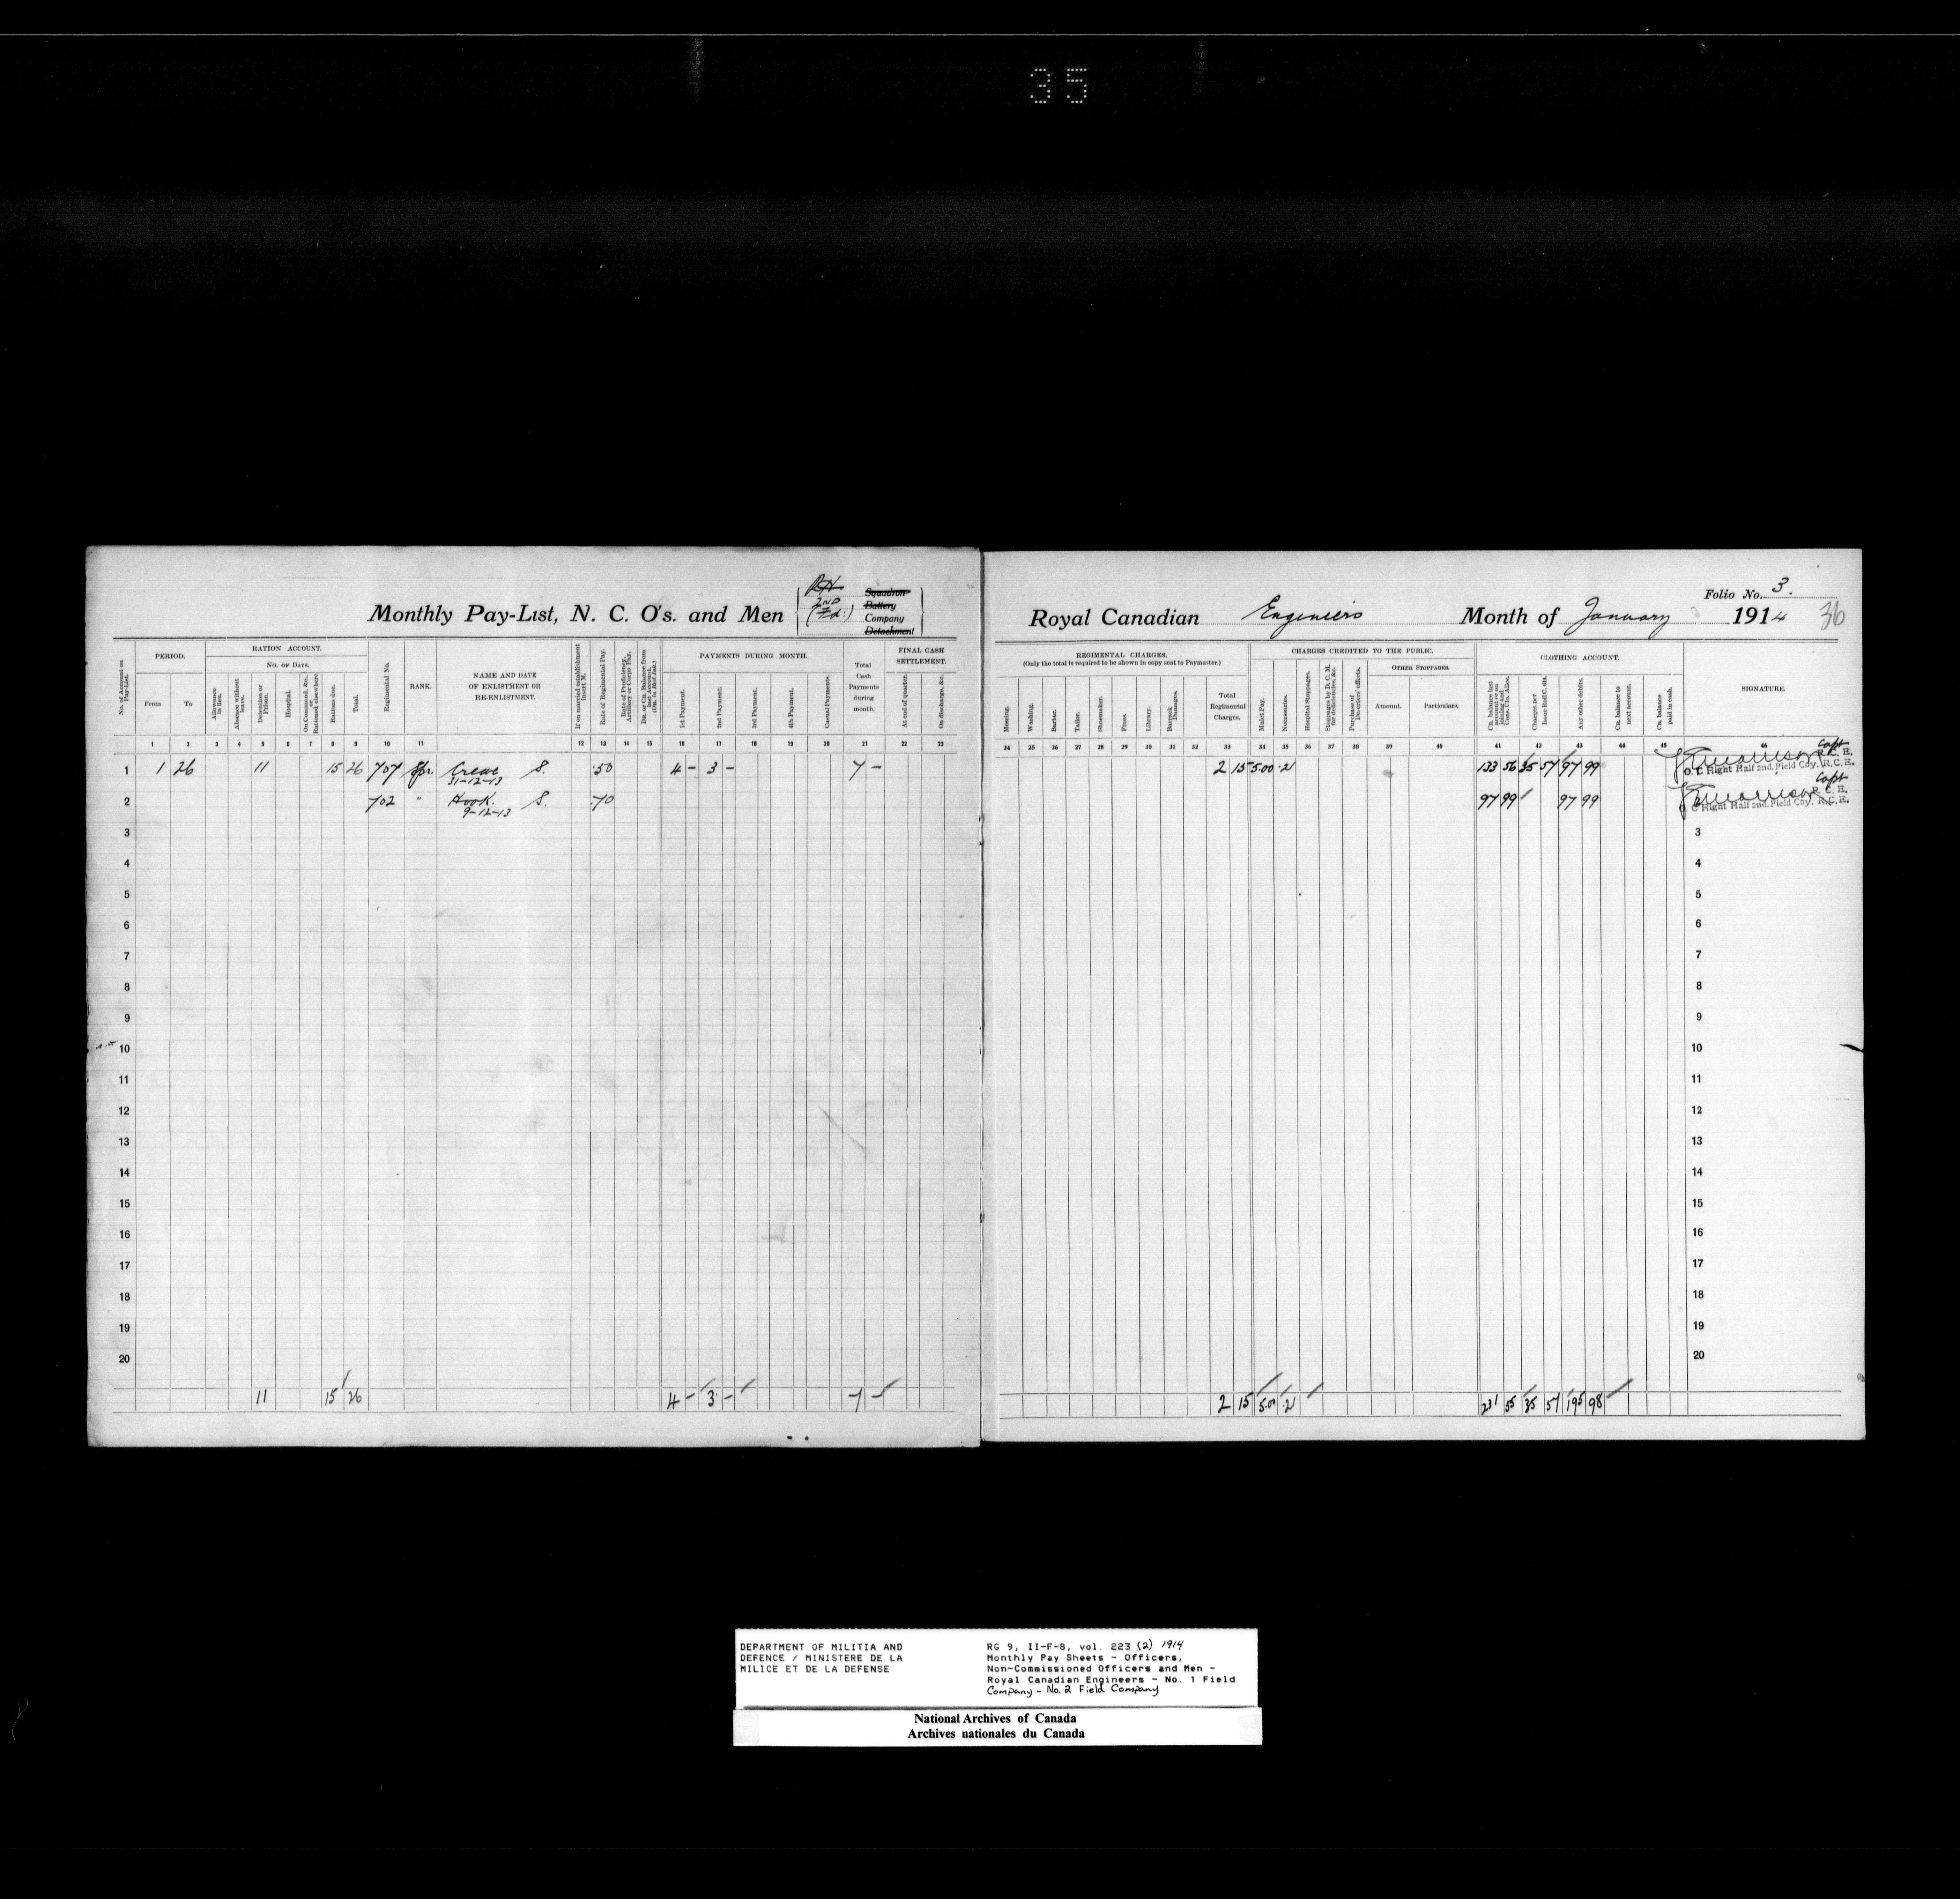 35
Monthly Pay-List, N. C. O's. and Men
R H
2ND
(Fd.)
Squadron
Battery
Company
Detachment
Royal Canadian Engineers Month of January 1914
Folio No. 3.
36
No. of Account on Pay-List.
PERIOD.
From To
RATION ACCOUNT.
No. of Days.
Allowance in lieu.
Absence without leave.
Detention or Prison.
Hospital.
On Command, &c., or Rationed elsewhere
Rations due.
Total.
Regimental No.
RANK.
NAME AND DATE
OF ENLISTMENT OR
RE-ENLISTMENT.
If on married establishment insert M.
Rate of Regimental Pay.
Rate of Proficiency, Artillery or Corps Pay.
Dr. or Cr. Balance from last Account. (Drs. in Red Ink.)
PAYMENTS DURING MONTH.
1st Payment.
2nd Payment.
3rd Payment.
4th Payment.
Casual Payments.
Total
Cash
Payments
during
month.
FINAL CASH
SETTLEMENT.
At end of quarter.
On discharge, &c.
REGIMENTAL CHARGES.
(Only the total is required to be shown in copy sent to Paymaster.)
Messing.
Washing.
Barber.
Tailor.
Shoemaker.
Fines.
Library.
Barrack Damages.
Total
Regimental
Charges.
CHARGES CREDITED TO THE PUBLIC.
Mulct Pay.
Necessaries.
Hospital Stoppages.
Stoppages by D. C. M. for deficiencies, &c.
Purchase of Deserters' effects.
OTHER STOPPAGES.
Amount.
Particulars.
CLOTHING ACCOUNT.
Cr. balance last account or on joining and Cons. Clo. Allce.
Charges per Issue Roll C. 61a.
Any other debits.
Cr. balance to next account.
Cr. balance paid in cash.
SIGNATURE.
1 2 3 4 5 6 7 8 9 10 11 12 13 14 15 16 17 18 19 20 21 22 23
24 25 26 27 28 29 30 31 32 33 34 35 36 37 38 39 40 41 42 43 44 45 46
1 1 26 11 15 26 707 Spr. Creae S. .50 4 - 3 - 7 - 2 15 5.00 .21 133 56 35 57 97 99
31-12-13
Capt
R. C. E.
O. C Right Half 2nd. Field Coy. R.C.E.
2 702 " Hook. S. .70 97 99 97 99
9-12-13
Capt
R. C. E.
O. C Right Half 2nd. Field Coy. R.C.E.
3 3
4 4
5 5
6 6
7 7
8 8
9 9
10 10
11 11
12 12
13 13
14 14
15 15
16 16
17 17
18 18
19 19
20 20
11 15 26 4 - 3 - 7 - 2 15 5.00 .21 231 55 35 57 195 98
DEPARTMENT OF MILITIA AND
DEFENCE / MINISTERE DE LA
MILICE ET DE LA DEFENSE
RG 9, II-F-8, vol. 223 (2) 1914
Monthly Pay Sheets - Officers,
Non-Commissioned Officers and Men -
Royal Canadian Engineers - No. 1 Field
Company - No. 2 Field Company
National Archives of Canada
Archives nationales du Canada